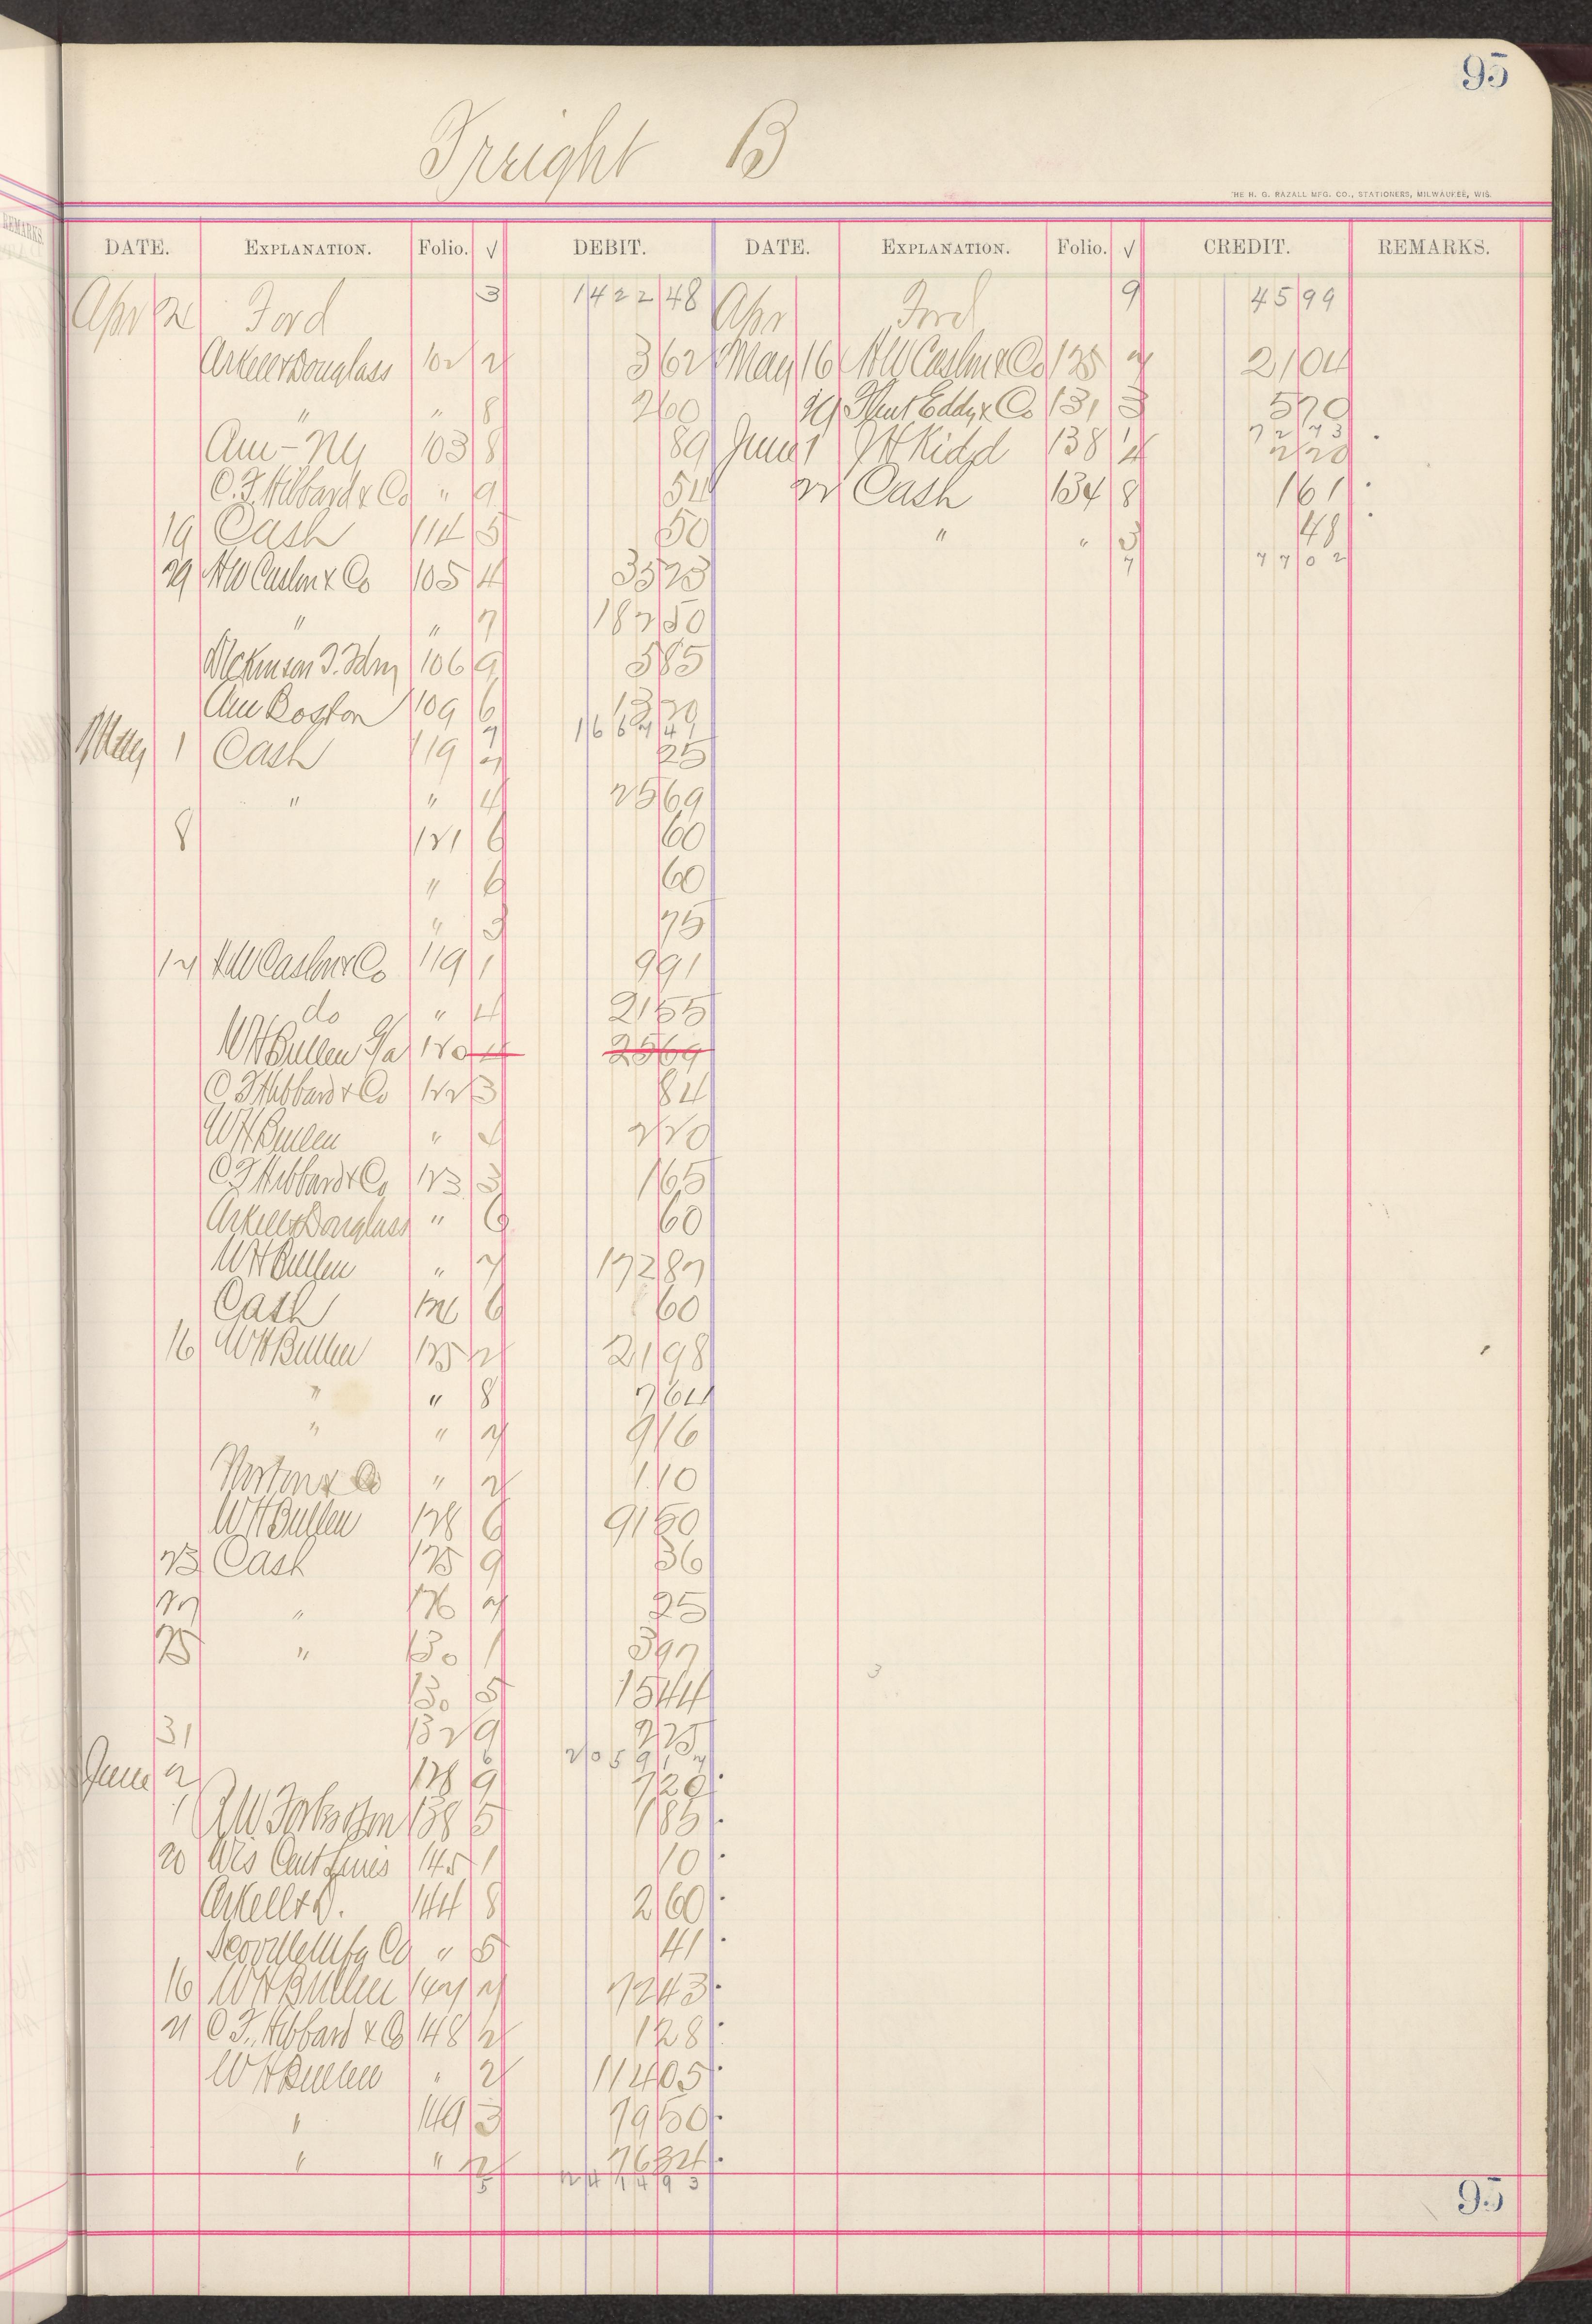 95
Freight B
THE H. G. RAZALL MFG. CO., STATIONERS, MILWAUKEE, WIS.
DATE. EXPLANATION. Folio. √ DEBIT. DATE. EXPLANATION. Folio. √ CREDIT. REMARKS.
Apr Ford 3 1422 48 Apr Ford 9 45 99
Arkell & Douglass 102 2 3 62 May 16 HW Caslon & Co 125 7 21 04
" " 8 2 60 29 Kent Eddy & Co 131 3 5 70
72 73
Am - Ny 103 8 89 June 1 JH Kidd 138 4 2 20
O. F. Hibbard & Co " 9 54 22 Cash 134 8 1 61
19 Cash 114 5 50 " " 3 48
7 77 02
29 HW Caslon & Co 105 4 35 73
" " 7 182 50
Dickinson T. Fdry 106 9 5 85
Am Boston 109 6 13 70
7 1667 41
May 1 Cash 119 7 25
" " 4 25 69
8 121 6 60
" 6 60
" 3 75
12 HW Caslon & Co 119 1 9 91
do " 4 21 55
WH Bullen 120 4 25 69
O F Hibbard & Co 122 3 84
WH Bullen " 2 20
O F Hibbard & Co 123 3 1 65
Arkell & Douglass " 6 60
WH Bullen " 7 172 87
Cash 6 60
16 WH Bullen 125 2 21 98
" " 8 7 64
" " 7 9 16
Norton & Co " 2 1 10
WH Bullen 128 6 91 50
23 Cash 125 9 36
" 126 7 25
25 " 130 1 3 97
130 5 15 44
31 132 9 2 25
6 2059 17
June 2 128 9 7 20
1 138 5 1 85
20 Wis Cent Lines 145 1 10
Arkell & D. 144 8 2 60
Scoville Mfg Co " 5 41
16 WH Bullen 147 7 72 43
21 O F. Hibbard & Co 148 2 1 28
WH Bullen " 2 114 05
" 149 3 79 50
" " 2 76 34
5 2414 93
95